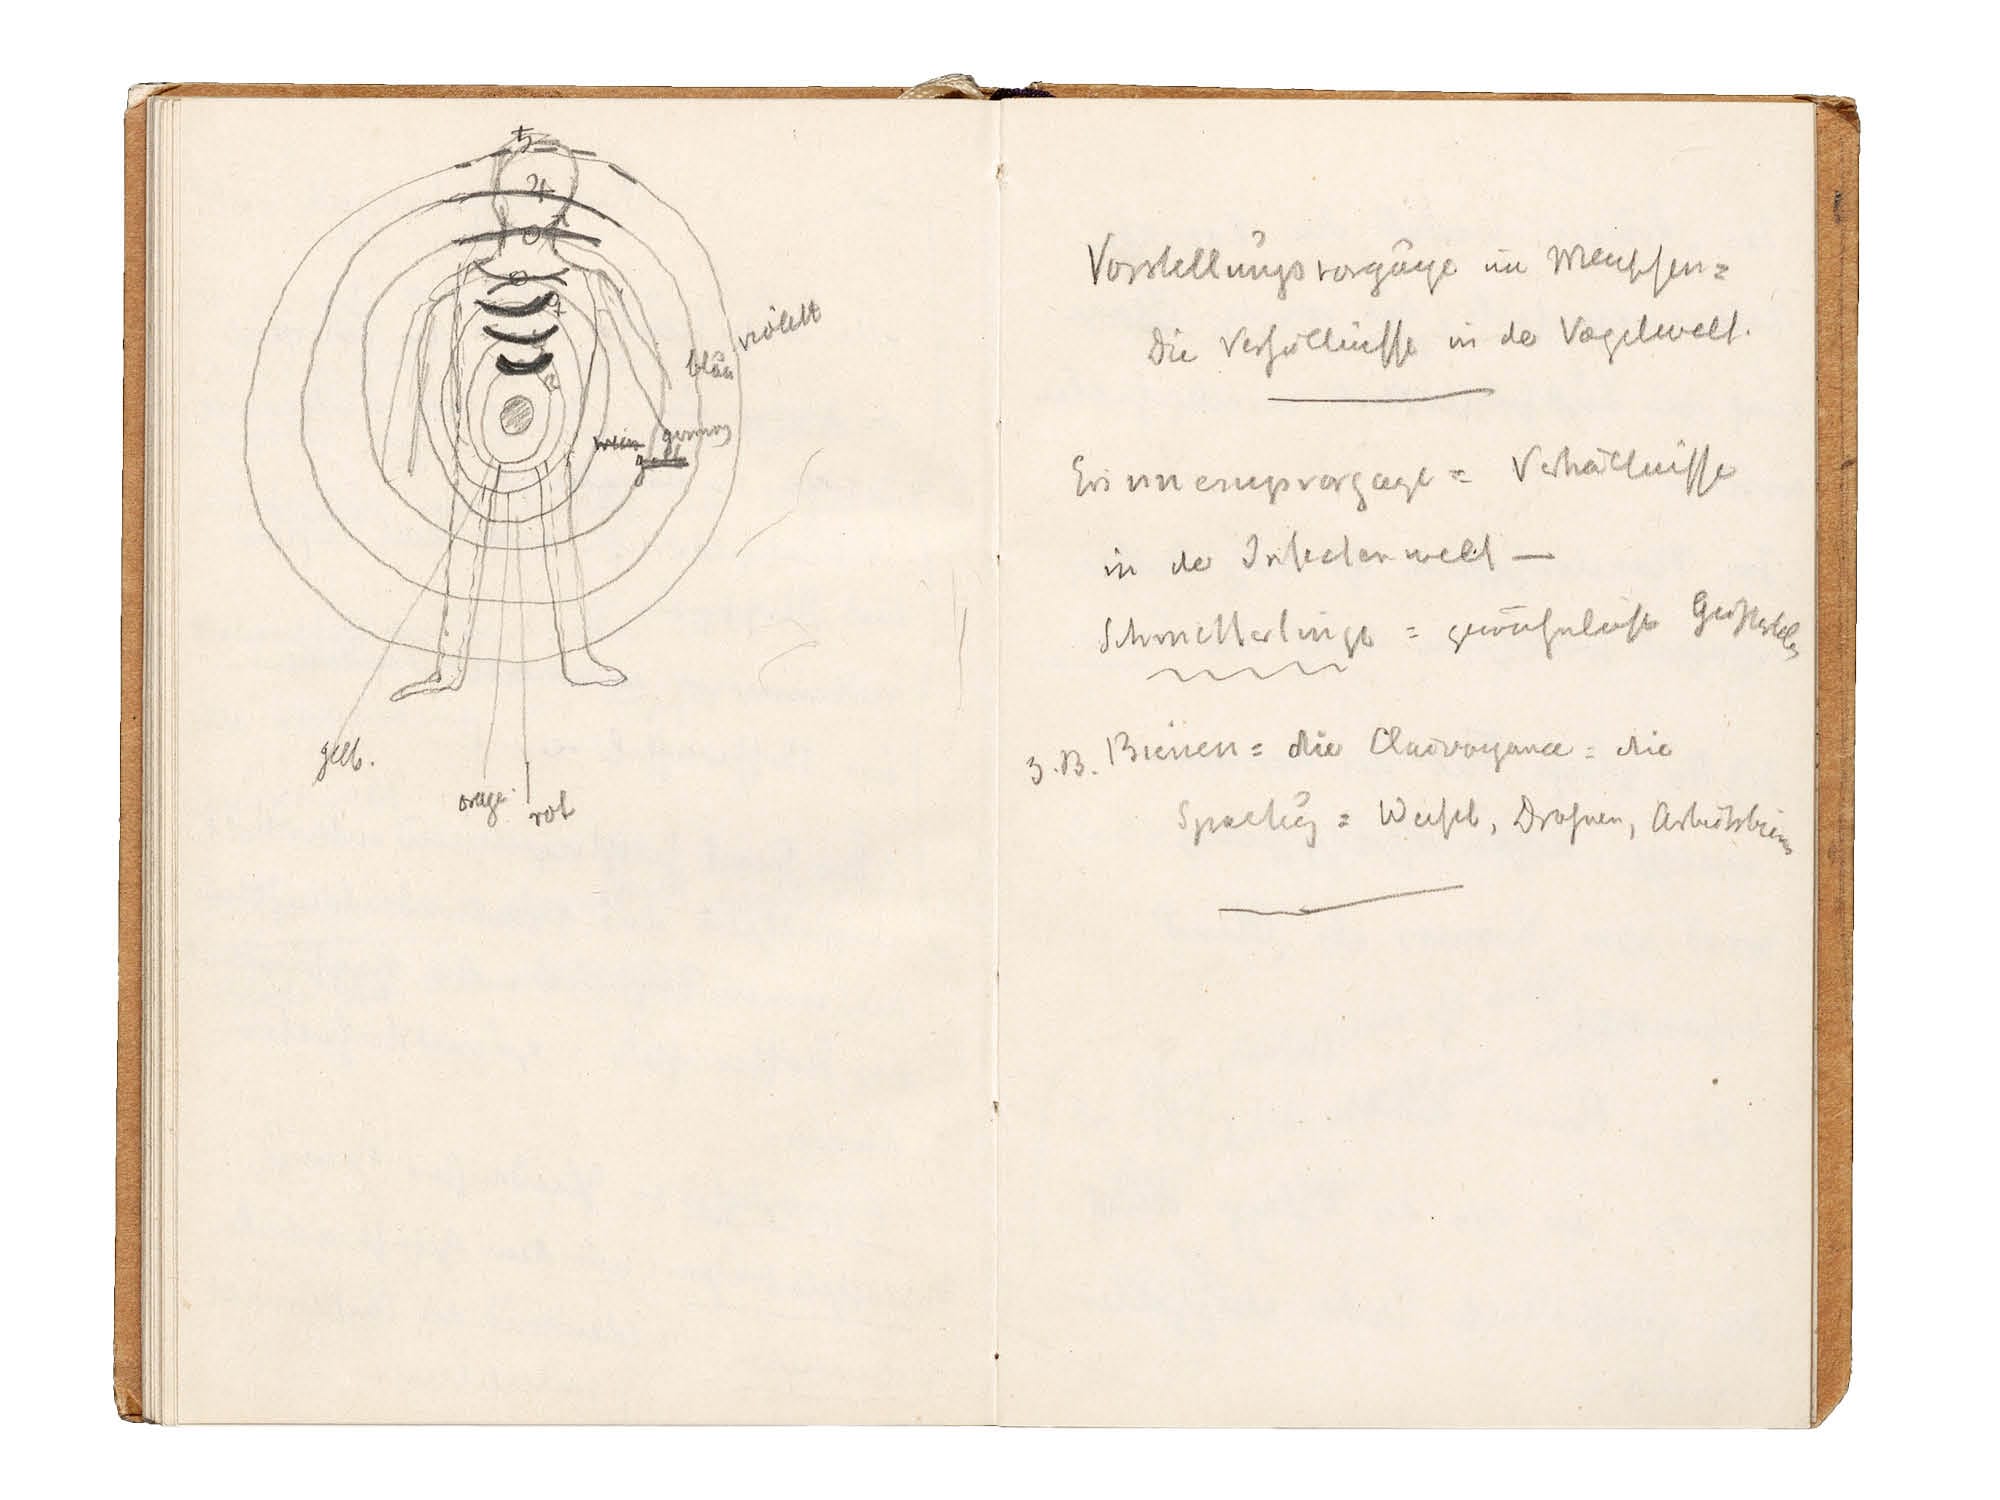 ♄
♃
♂
violett
blau
grün
gelb
gelb.
orage.
rot
Vorstellungsvorgäge im Menschen =
Die Verhältnisse in der Vogelwelt.
Erinnerungsvorgage = Verhältnisse
in der Insectenwelt —
Schmetterlinge = gewöhnliche
z.B. Bienen = die Clairvoyance = die
= Weisel, Drohnen, Arbeitsbienen